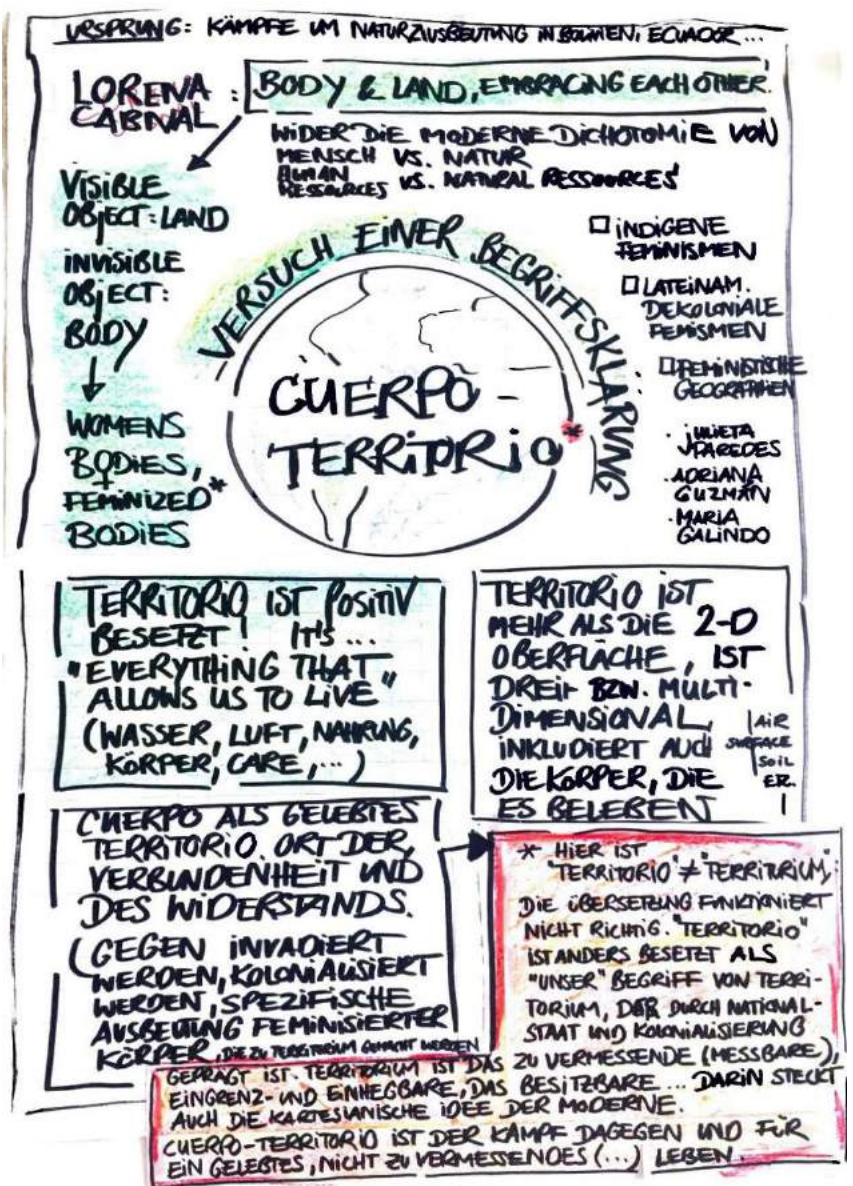 URSPRUNG: KÄMPFE UM NATURAUSBEUTUNG IN BOLIVIEN, ECUADOR ...
LORENA
CABNAL :
BODY & LAND, EMBRACING EACH OTHER.
WIDER DIE MODERNE DICHOTOMIE VON
MENSCH VS. NATUR
HUMAN
RESSOURCES VS. NATURAL RESSOURCES
VISIBLE
OBJECT: LAND
INVISIBLE
OBJECT:
BODY
WOMENS
BODIES,
FEMINIZED*
BODIES
VERSUCH EINER BEGRIFFSKLÄRUNG
CUERPO -
TERRITORIO*
INDIGENE
FEMINISMEN
LATEINAM.
DEKOLONIALE
FEMISMEN
FEMINISTISCHE
GEOGRAPHIEN
· JULIETA
PAREDES
· ADRIANA
GUZMÁN
· MARIA
GALINDO
TERRITORIO IST POSITIV
BESETZT! IT'S ...
"EVERYTHING THAT
ALLOWS US TO LIVE"
(WASSER, LUFT, NAHRUNG,
KÖRPER, CARE, ...)
TERRITORIO IST
MEHR ALS DIE 2-D
OBERFLÄCHE, IST
DREI- BZW. MULTI-
DIMENSIONAL,
INKLUDIERT AUCH
DIE KÖRPER, DIE
ES BELEBEN
AIR
SURFACE
SOIL
CUERPO ALS GELEBTES
TERRITORIO. ORT DER
VERBUNDENHEIT UND
DES WIDERSTANDS.
(GEGEN INVADIERT
WERDEN, KOLONIALISIERT
WERDEN, SPEZIFISCHE
AUSBEUTUNG FEMINISIERTER
KÖRPER, DIE ZU TERRITORIUM GEMACHT WERDEN
* HIER IST
"TERRITORIO" ≠ "TERRITORIUM",
DIE ÜBERSETZUNG FUNKTIONIERT
NICHT RICHTIG. "TERRITORIO"
IST ANDERS BESETZT ALS
"UNSER" BEGRIFF VON TERRI-
TORIUM, DER DURCH NATIONAL-
STAAT UND KOLONIALISIERUNG
GEPRÄGT IST. TERRITORIUM IST DAS ZU VERMESSENDE (MESSBARE),
EINGRENZ- UND EINHEGBARE, DAS BESITZBARE ... DARIN STECKT
AUCH DIE KARTESIANISCHE IDEE DER MODERNE.
CUERPO-TERRITORIO IST DER KAMPF DAGEGEN UND FÜR
EIN GELEBTES, NICHT ZU VERMESSENDES (...) LEBEN.